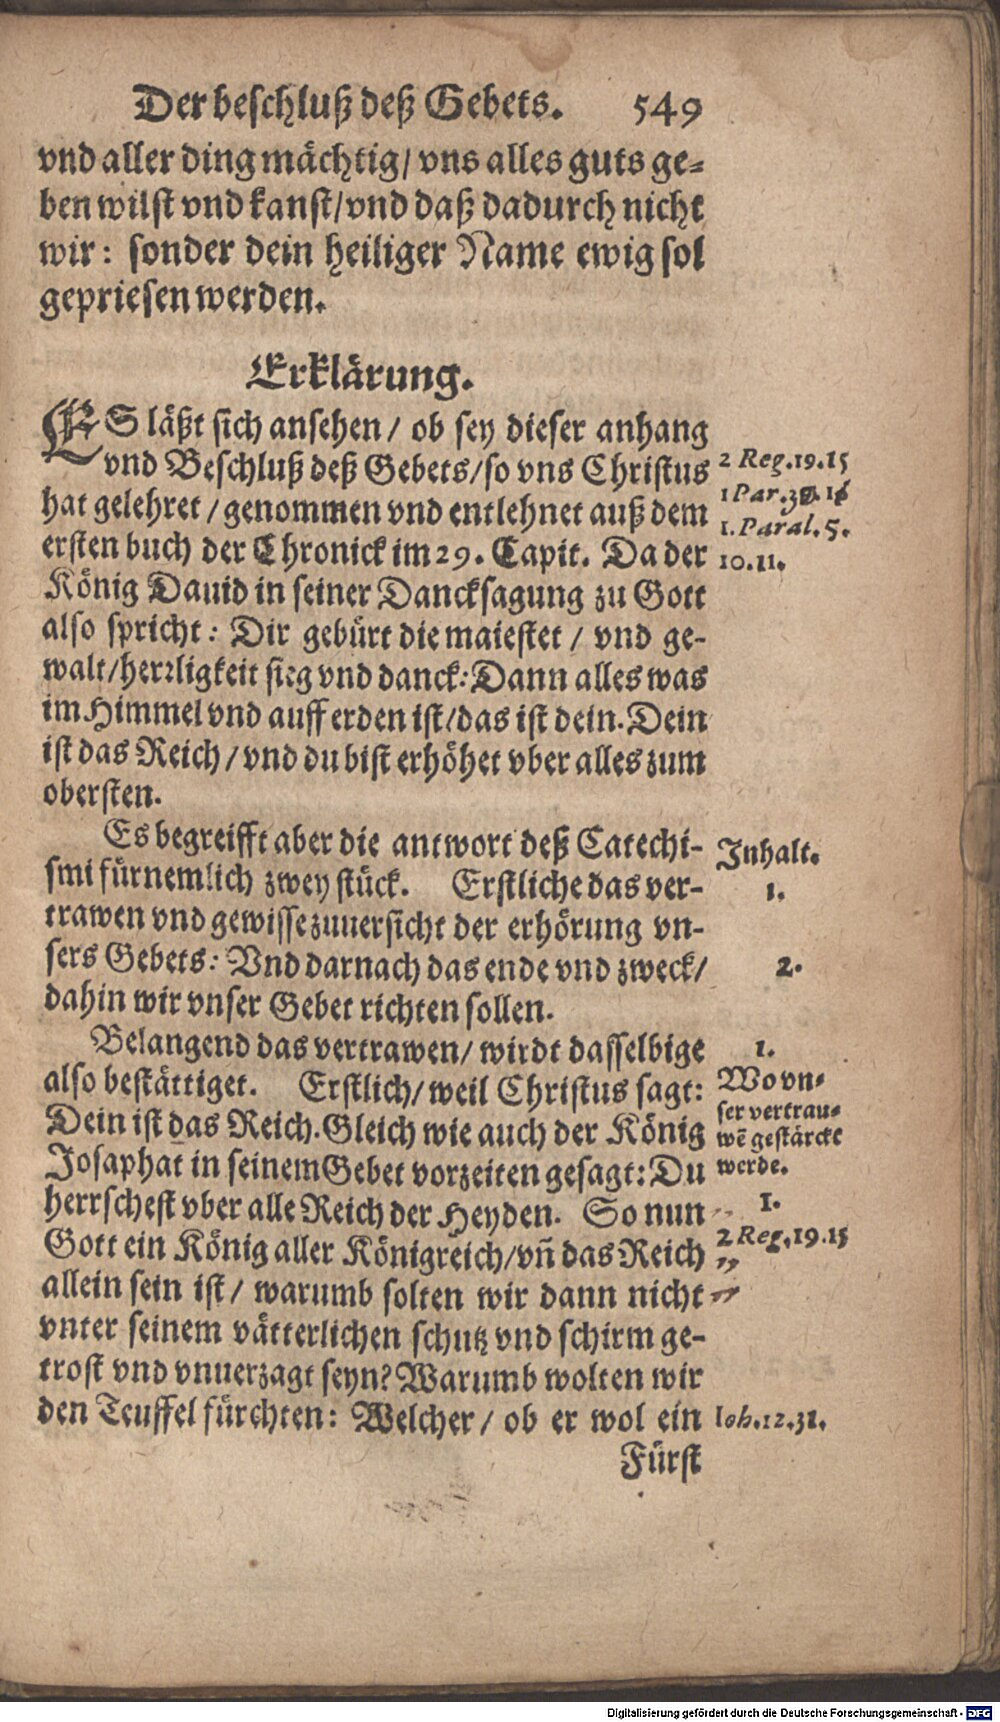 Der beschluß deß Gebets. 549
vnd aller ding mächtig/ vns alles guts ge-
ben wilst vnd kanst/ vnd daß dadurch nicht
wir: sonder dein heiliger Name ewig sol
gepriesen werden.
Erklärung.
ES läßt sich ansehen/ ob sey dieser anhang
vnd Beschluß deß Gebets/ so vns Christus
hat gelehret/ genommen vnd entlehnet auß dem
ersten buch der Chronick im 29. Capit. Da der
König Dauid in seiner Dancksagung zu Gott
also spricht: Dir gebürt die maiestet/ vnd ge-
walt/ herrligkeit sieg vnd danck: Dann alles was
im Himmel vnd auff erden ist/ das ist dein. Dein
ist das Reich/ vnd du bist erhöhet vber alles zum
obersten.
2 Reg. 19. 15
1 Par.
1. Paral. 5.
10. 11.
Es begreifft aber die antwort deß Catechi-
smi fürnemlich zwey stück. Erstliche das ver-
trawen vnd gewisse zuuersicht der erhörung vn-
sers Gebets: Vnd darnach das ende vnd zweck/
dahin wir vnser Gebet richten sollen.
Inhalt.
1.
2.
Belangend das vertrawen/ wirdt dasselbige
also bestättiget. Erstlich/ weil Christus sagt:
Dein ist das Reich. Gleich wie auch der König
Josaphat in seinem Gebet vorzeiten gesagt: Du
herrschest vber alle Reich der Heyden. So nun
Gott ein König aller Königreich/ vn̄ das Reich
allein sein ist/ warumb solten wir dann nicht
vnter seinem vätterlichen schutz vnd schirm ge-
trost vnd vnuerzagt seyn? Warumb wolten wir
den Teuffel fürchten: Welcher/ ob er wol ein
Fürst
1.
Wo vn-
ser vertrau-
wē gestärckt
werde.
1.
2 Reg. 19. 15
Ioh. 12. 31.
Digitalisierung gefördert durch die Deutsche Forschungsgemeinschaft - DFG